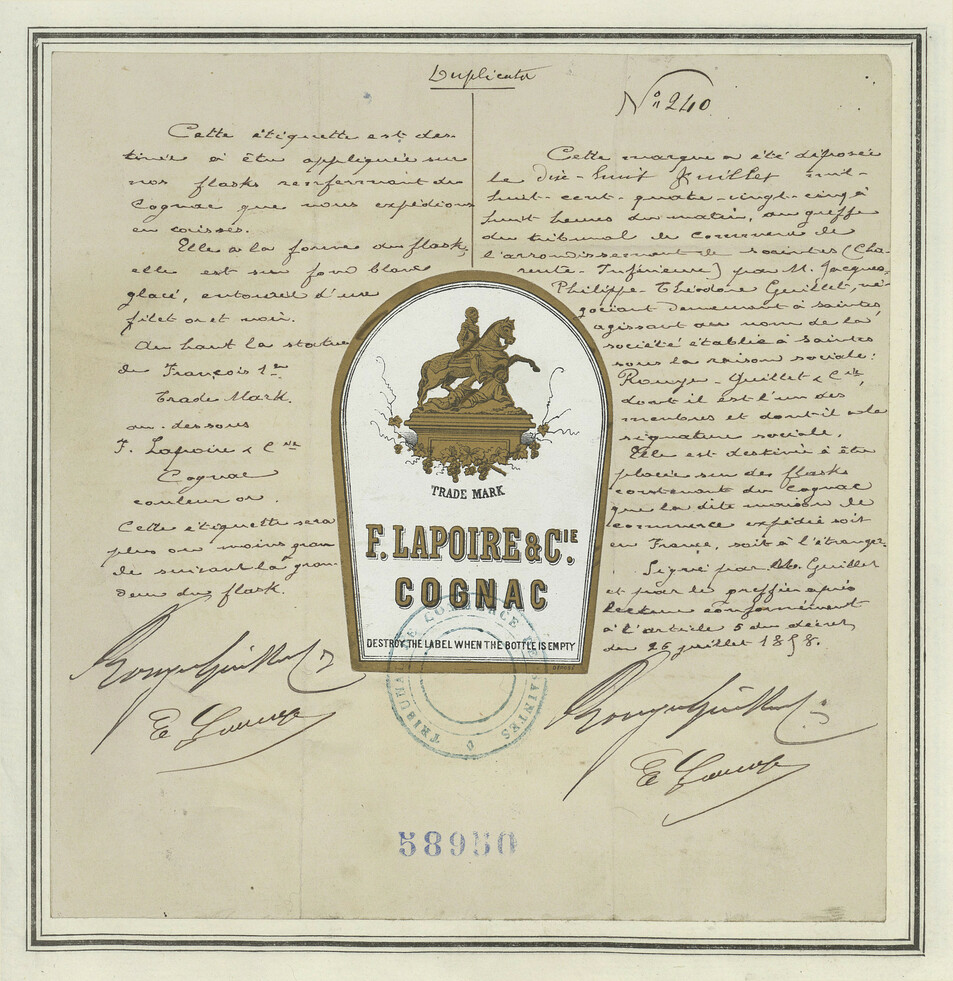 Duplicata
Nº 240
Cette étiquette est des-
tinée à être appliquée sur
nos flasks renfermant du
Cognac que nous expédions
en caisses.
Elle a la forme du flask,
elle est sur fond blanc
glacé, entouré d'un
filet or et noir.
Au haut la statue
de François 1er
Trade Mark.
au-dessous
F. Lapoire & Cie
Cognac
couleur or.
Cette étiquette sera
plus ou moins gran-
de suivant la gran-
deur du flask.
Rouyer Guillet
Cette marque a été déposée
le dix-huit Juillet mil-
huit-cent-quatre-vingt-cinq à
huit heures du matin, au greffe
du tribunal de commerce de
l'arrondissement de Saintes (Cha-
rente-Inférieure) par M. Jacques-
Philippe Théodore Guillet, né-
gociant demeurant à Saintes,
agissant au nom de la
société établie à Saintes
sous la raison sociale:
Rouyer-Guillet & Cie,
dont il est l'un des
membres et dont il a la
signature sociale.
Elle est destinée à être
placée sur des flasks
contenant du Cognac
que la dite maison de
commerce expédie soit
en France, soit à l'étranger.
Signé par M. Guillet
et par le greffier après
lecture conformément
à l'article 5 du décret
du 26 juillet 1858.
Rouyer Guillet
TRADE MARK
F. LAPOIRE & CIE.
COGNAC
DESTROY THE LABEL WHEN THE BOTTLE IS EMPTY
TRIBUNAL DE COMMERCE DE SAINTES
58950